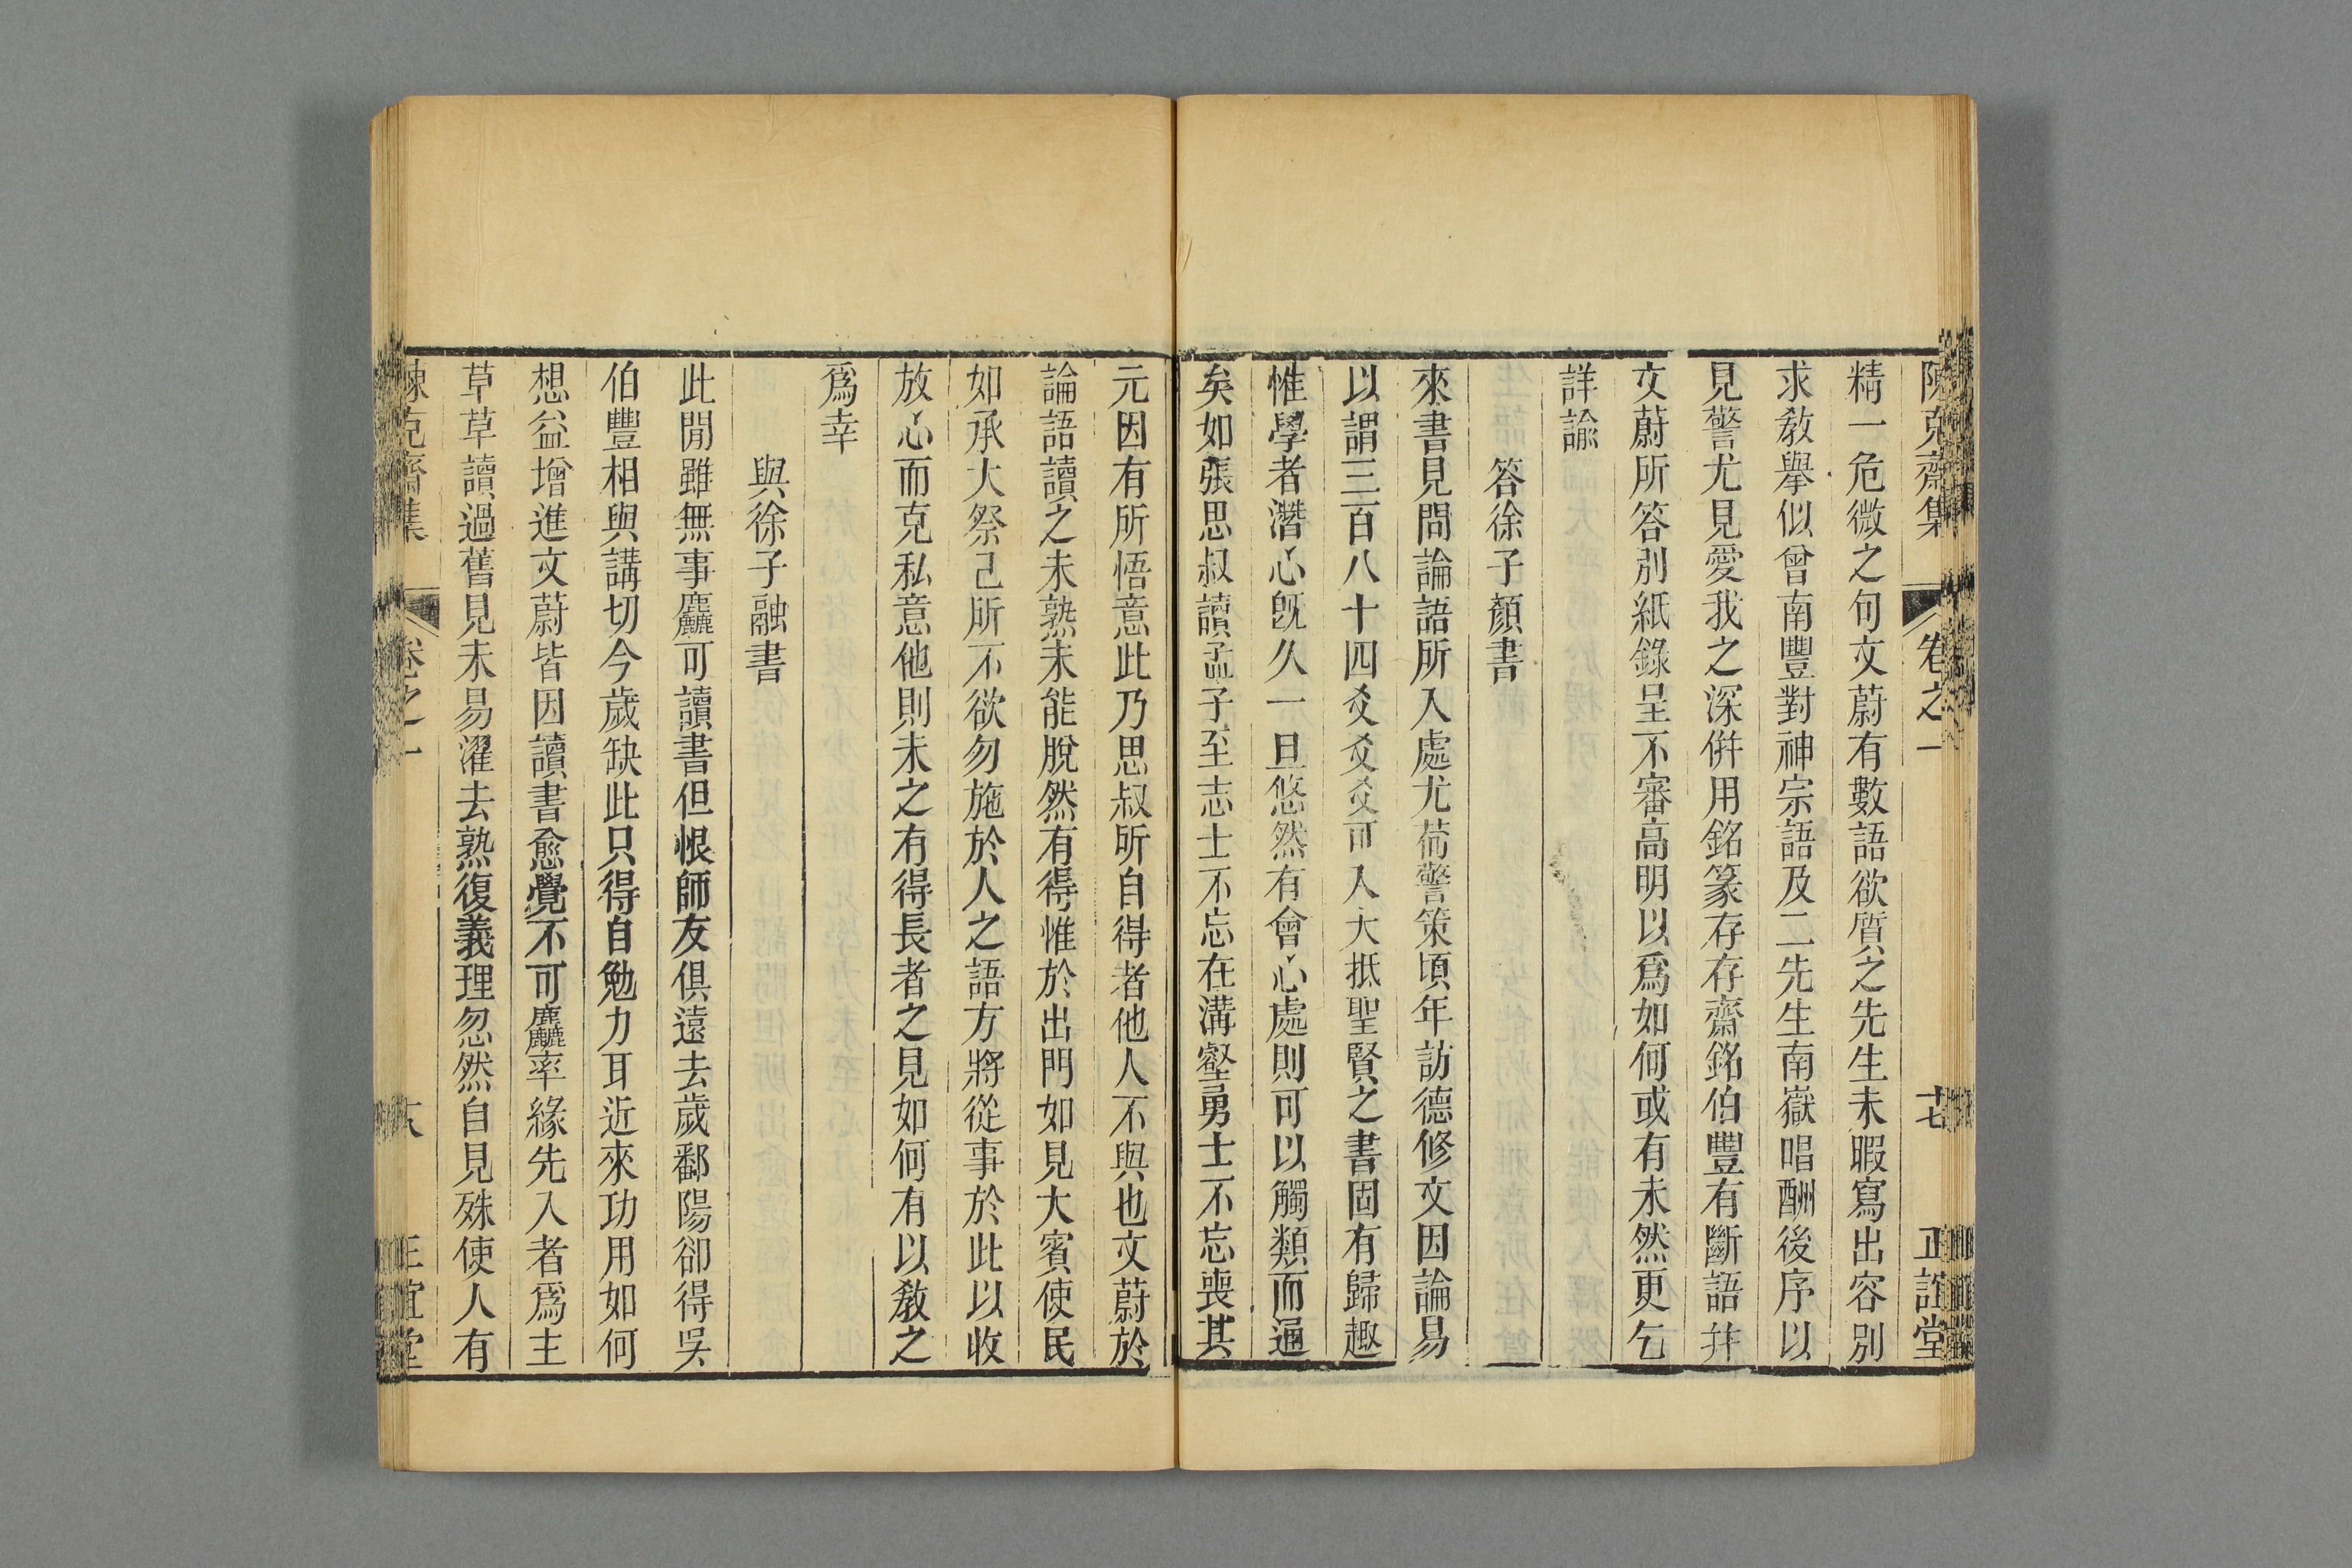 陳克齋集 卷之一 十七 正誼堂
精一危微之句文蔚有數語欲質之先生未暇寫出容別
求教舉似曾南豐對神宗語及二先生南嶽唱酬後序以
見警尤見愛我之深併用銘篆存存齋銘伯豐有斷語并
文蔚所答別紙錄呈不審高明以爲如何或有未然更乞
詳諭
答徐子顏書
來書見問論語所入處尤荷警策頃年訪德修文因論易
以謂三百八十四爻爻爻可入大抵聖賢之書固有歸趣
惟學者潛心旣久一旦悠然有會心處則可以觸類而通
矣如張思叔讀孟子至志士不忘在溝壑勇士不忘喪其
元因有所悟意此乃思叔所自得者他人不與也文蔚於
論語讀之未熟未能脫然有得惟於出門如見大賓使民
如承大祭己所不欲勿施於人之語方將從事於此以收
放心而克私意他則未之有得長者之見如何有以敎之
爲幸
與徐子融書
此閒雖無事麤可讀書但恨師友俱遠去歲鄱陽卻得吳
伯豐相與講切今歲缺此只得自勉力耳近來功用如何
想益增進文蔚皆因讀書愈覺不可麤率緣先入者爲主
草草讀過舊見未易濯去熟復義理忽然自見殊使人有
陳克齋集 卷之一 正誼堂